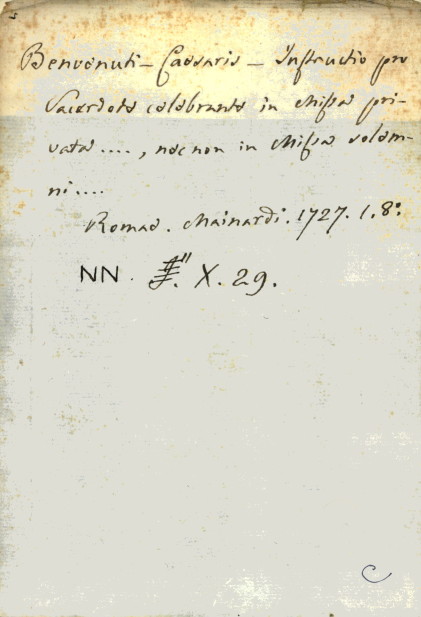 Benvenuti - Caesaris - Instructio pro
Sacerdote celebrante in Missa pri-
vata ...., nec non in Missa solem-
ni ....
Romae. Mainardi. 1727. 1. 8º.
NN. X. 29.
C